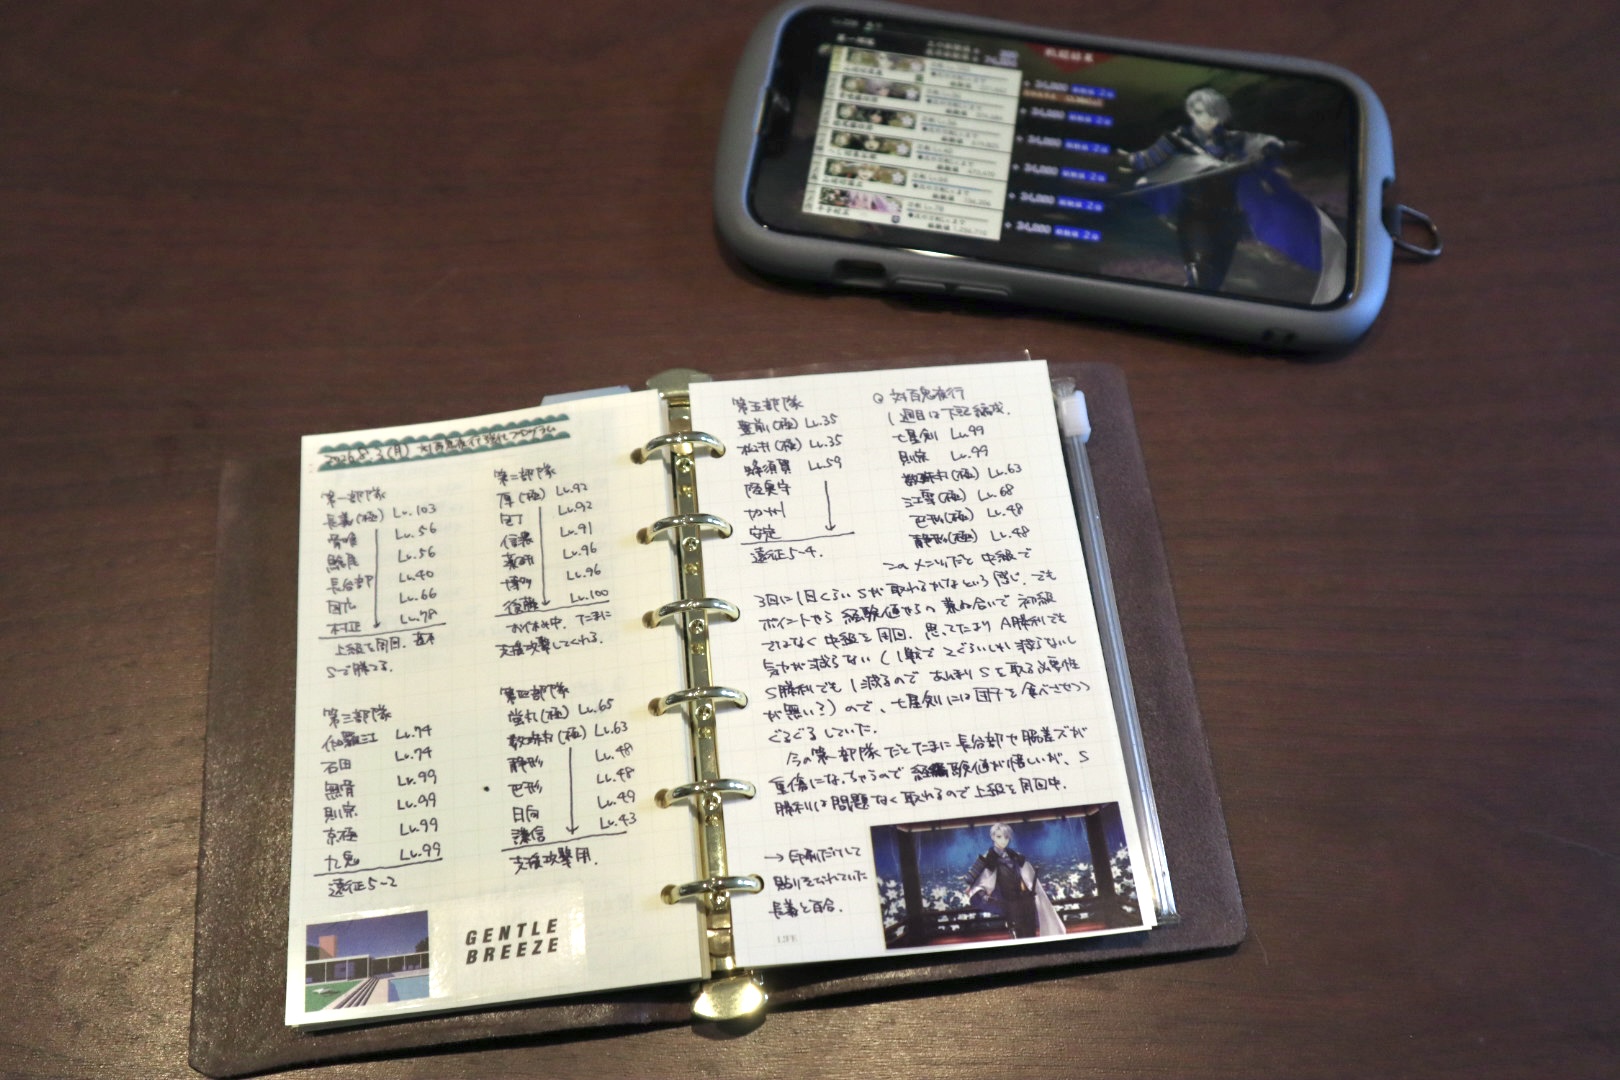 2026.8.3(月) 対百鬼夜行強化プログラム
第一部隊
長義(極) Lv.103
骨喰 Lv.56
鯰尾 Lv.56
長谷部 Lv.40
国広 Lv.66
村正 Lv.78
上級を周回。基本
Sで勝てる。
第二部隊
厚(極) Lv.92
包丁 Lv.92
信濃 Lv.91
薬研 Lv.96
博多 Lv.96
後藤 Lv.100
お休み中。たまに
支援攻撃してくれる。
第三部隊
伽羅江 Lv.74
石田 Lv.74
無骨 Lv.99
則宗 Lv.99
京極 Lv.99
九鬼 Lv.99
遠征5-2
第四部隊
蛍丸(極) Lv.65
数珠丸(極) Lv.63
静形 Lv.48
巴形 Lv.48
日向 Lv.49
謙信 Lv.43
支援攻撃用。
GENTLE
BREEZE
第五部隊
豊前(極) Lv.35
松井(極) Lv.35
蜂須賀 Lv.59
陸奥守
加州
安定
遠征5-4.
対百鬼夜行
1週目は下記編成.
七星剣 Lv.99
則宗 Lv.99
数珠丸(極) Lv.63
江雪(極) Lv.68
巴形(極) Lv.48
静形(極) Lv.48
このメンツだと中級で
3回に1回くらいSが取れるかなという感じ。でも
ポイントやら経験値やらの兼ね合いで初級
ではなく中級を周回。思ってたよりA勝利でも
気力が減らない(1戦で2ぐらいしか減らないし
S勝利でも1減るのであんまりSを取る必要性
が無い?)ので、七星剣には団子を食べさせつつ
ぐるぐるしていた。
今の第一部隊だとたまに長谷部や脇差ズが
重傷になっちゃうので経験値が惜しいが、S
勝利は問題なく取れるので上級を周回中.
→印刷だけして
貼りそびれていた
長義と百合.
LIFE
+ 34,880 経験値 2倍
+ 34,880 経験値 2倍
+ 34,880 経験値 2倍
+ 34,880 経験値 2倍
+ 34,880 経験値 2倍
+ 34,880 経験値 2倍